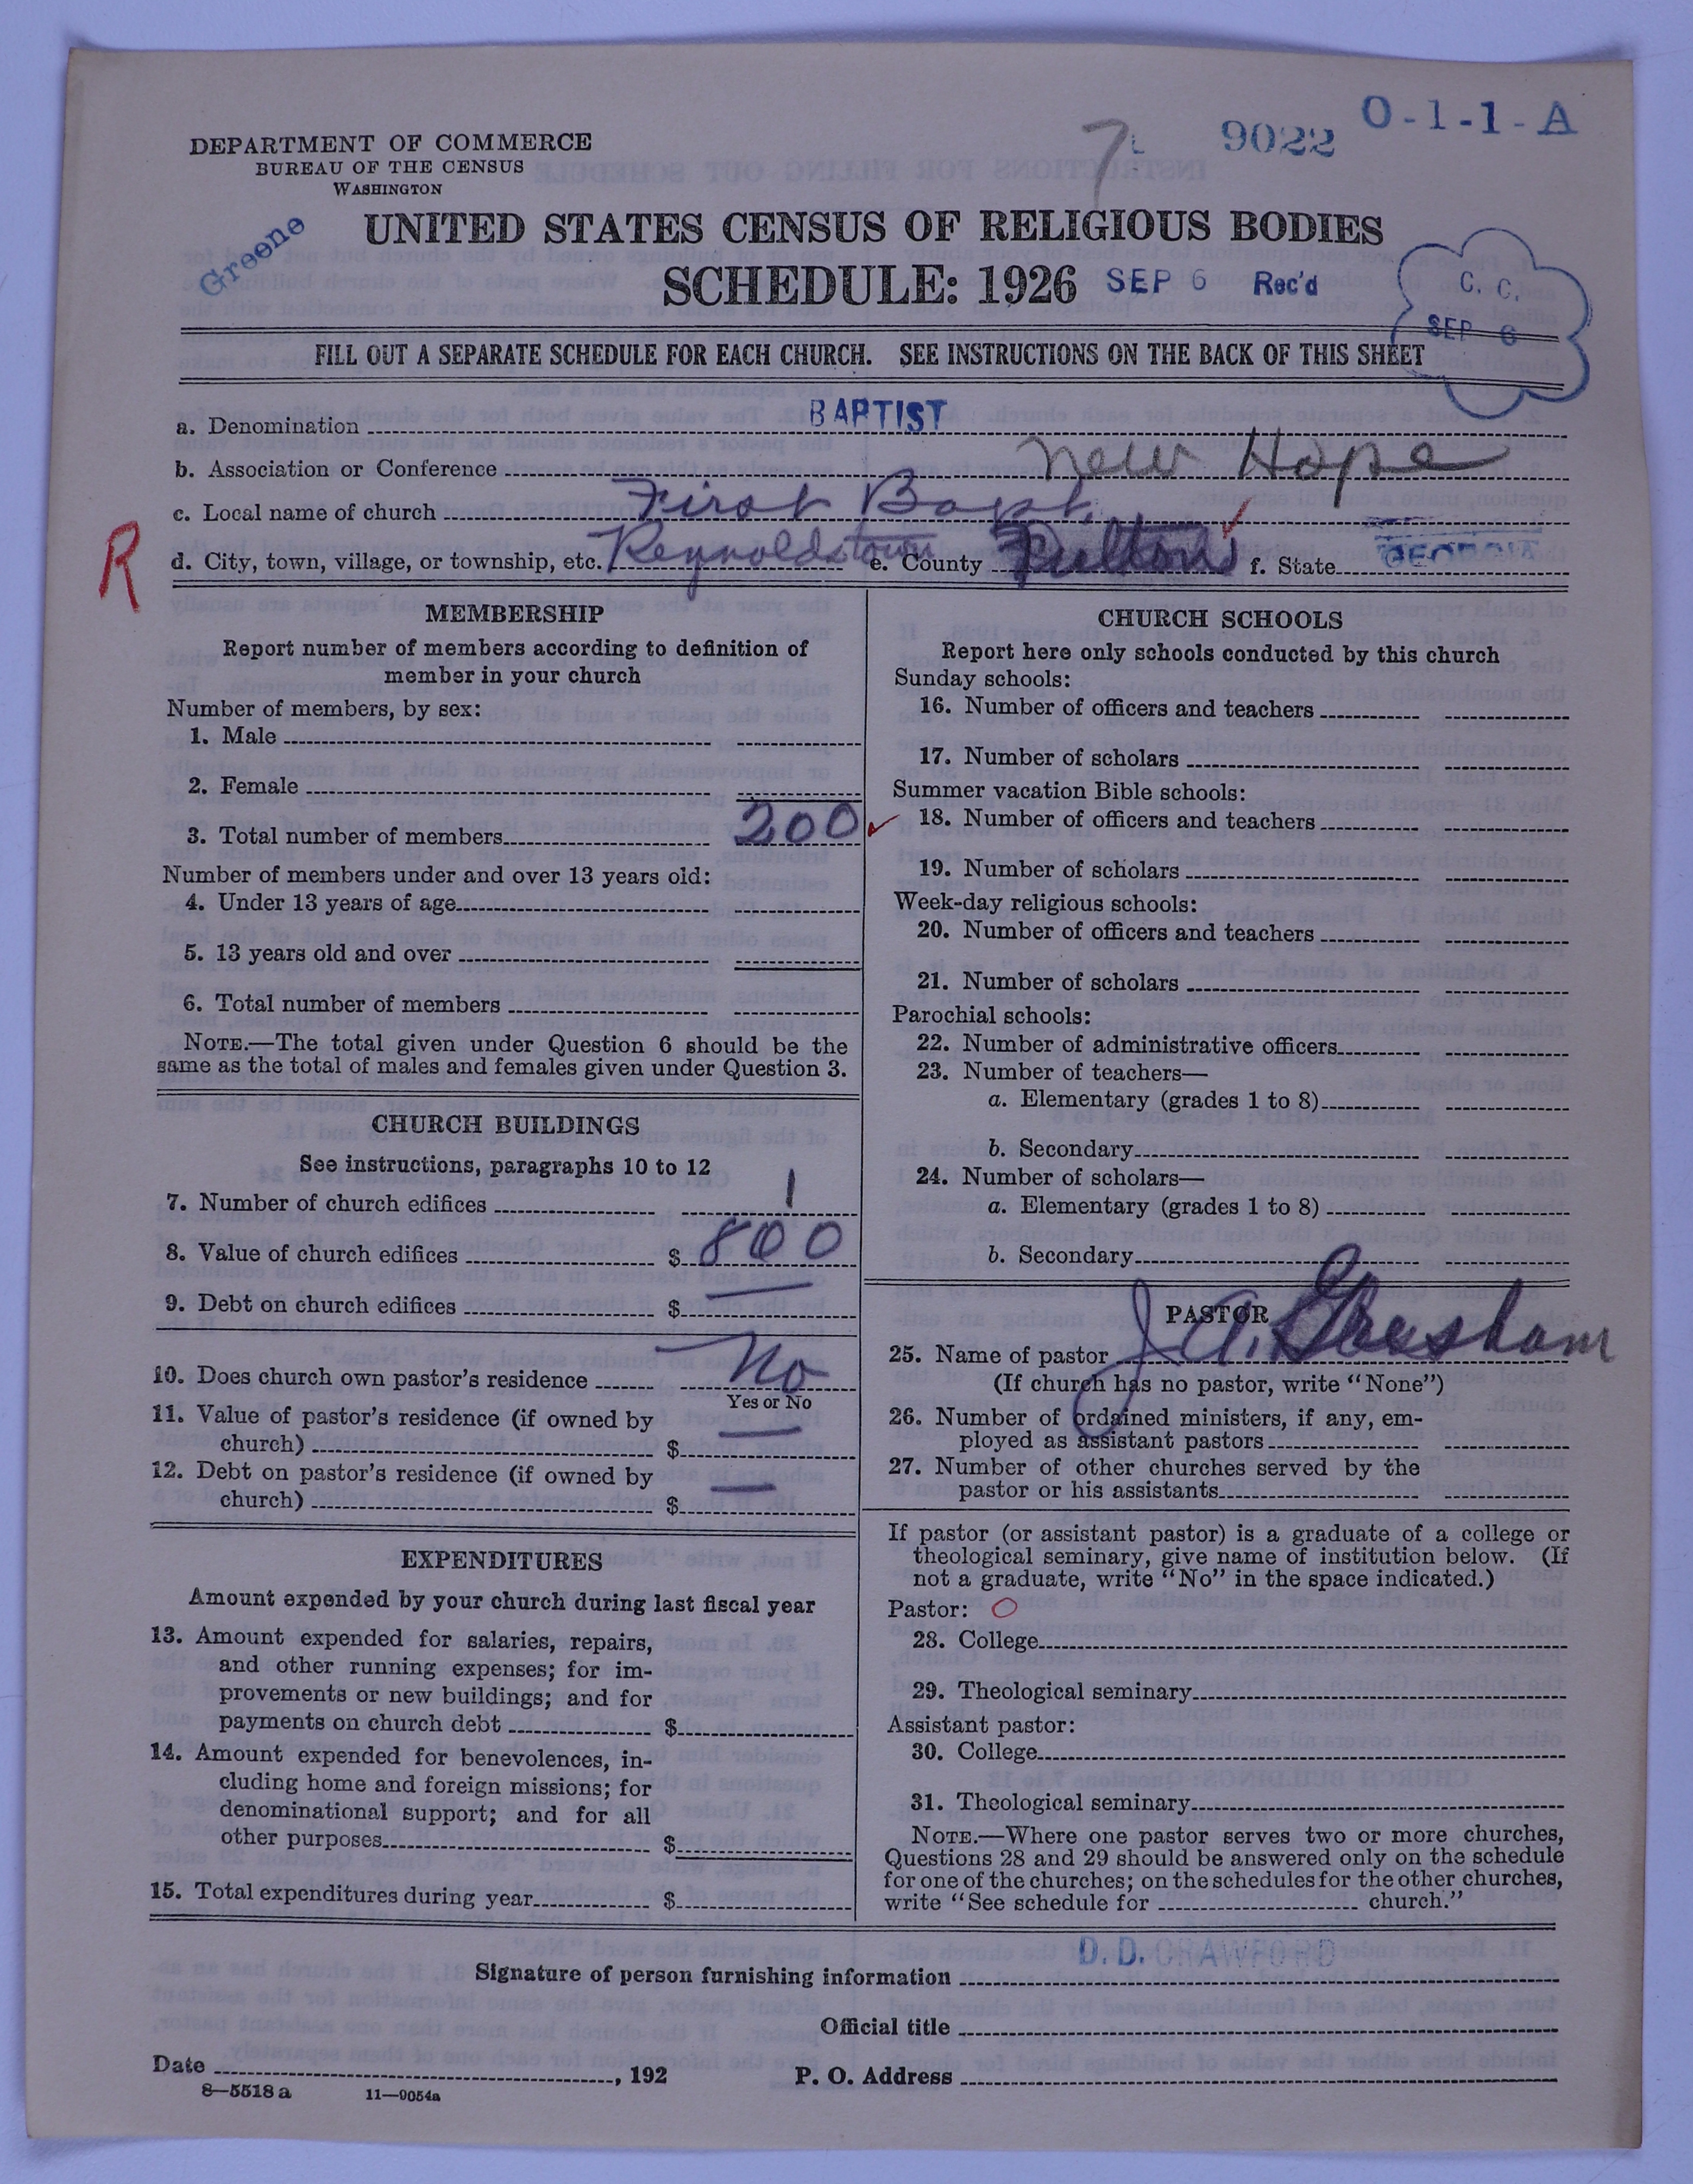 O-1-1-A
7
9022
DEPARTMENT OF COMMERCE
BUREAU OF THE CENSUS
WASHINGTON
Greene
UNITED STATES CENSUS OF RELIGIOUS BODIES
SCHEDULE: 1926 SEP 6 Rec'd
C. C.
SEP 6
FILL OUT A SEPARATE SCHEDULE FOR EACH CHURCH. SEE INSTRUCTIONS ON THE BACK OF THIS SHEET
a. Denomination BAPTIST
b. Association or Conference New Hope
c. Local name of church First Bapt.
R
d. City, town, village, or township, etc. Reynoldstown e. County Fulton f. State GEORGIA
MEMBERSHIP
Report number of members according to definition of
member in your church
Number of members, by sex:
1. Male
2. Female
3. Total number of members 200
Number of members under and over 13 years old:
4. Under 13 years of age
5. 13 years old and over
6. Total number of members
NOTE.—The total given under Question 6 should be the
same as the total of males and females given under Question 3.
CHURCH BUILDINGS
See instructions, paragraphs 10 to 12
7. Number of church edifices 1
8. Value of church edifices $ 800
9. Debt on church edifices $
10. Does church own pastor's residence No
Yes or No
11. Value of pastor's residence (if owned by
church) $ —
12. Debt on pastor's residence (if owned by
church) $ —
EXPENDITURES
Amount expended by your church during last fiscal year
13. Amount expended for salaries, repairs,
and other running expenses; for im-
provements or new buildings; and for
payments on church debt $
14. Amount expended for benevolences, in-
cluding home and foreign missions; for
denominational support; and for all
other purposes $
15. Total expenditures during year $
CHURCH SCHOOLS
Report here only schools conducted by this church
Sunday schools:
16. Number of officers and teachers
17. Number of scholars
Summer vacation Bible schools:
18. Number of officers and teachers
19. Number of scholars
Week-day religious schools:
20. Number of officers and teachers
21. Number of scholars
Parochial schools:
22. Number of administrative officers
23. Number of teachers—
a. Elementary (grades 1 to 8)
b. Secondary
24. Number of scholars—
a. Elementary (grades 1 to 8)
b. Secondary
PASTOR
25. Name of pastor J. A. Gresham
(If church has no pastor, write "None")
26. Number of ordained ministers, if any, em-
ployed as assistant pastors
27. Number of other churches served by the
pastor or his assistants
If pastor (or assistant pastor) is a graduate of a college or
theological seminary, give name of institution below. (If
not a graduate, write "No" in the space indicated.)
Pastor: O
28. College
29. Theological seminary
Assistant pastor:
30. College
31. Theological seminary
NOTE.—Where one pastor serves two or more churches,
Questions 28 and 29 should be answered only on the schedule
for one of the churches; on the schedules for the other churches,
write "See schedule for church."
D. D. CRAWFORD
Signature of person furnishing information
Official title
Date , 192
P. O. Address
8—5518 a 11—9054a